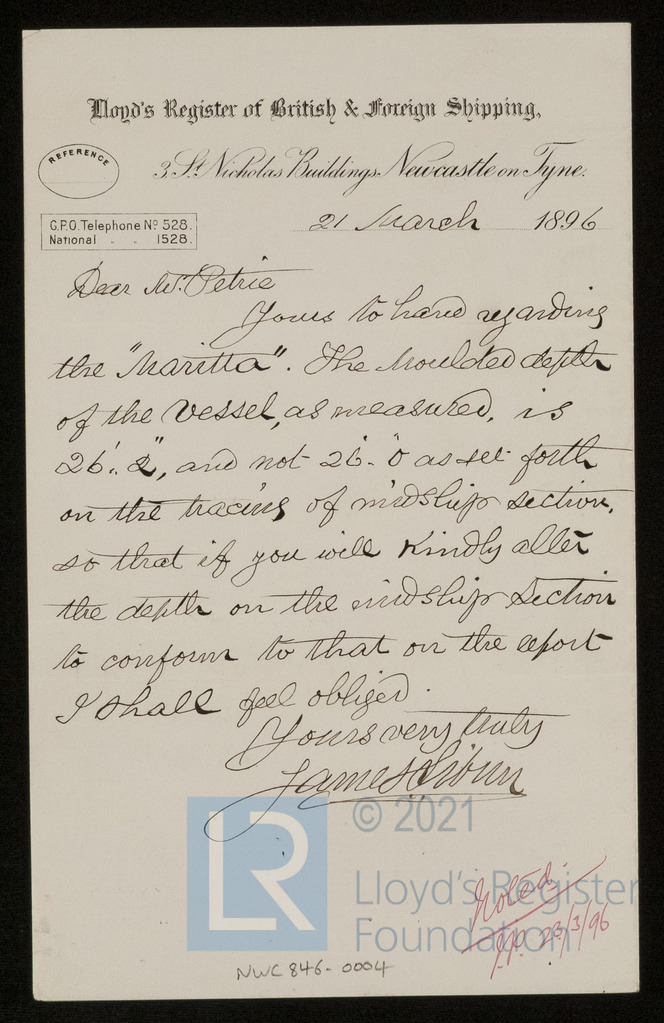 Lloyd's Register of British & Foreign Shipping,
REFERENCE
3, St Nicholas Buildings, Newcastle on Tyne.
G.P.O. Telephone No 528.
National . . 1528.
21 March 1896
Dear Mr. Petrie
Yours to hand regarding
the "Maritta". The Moulded depth
of the Vessel, as measured, is
26'.. 2", and not 26'- 0" as set forth
on the tracing of midship section,
so that if you will kindly alter
the depth on the midship section
to conform to that on the report
I shall feel obliged.
Yours very truly
James
LR
© 2021
Lloyd's Register
Foundation
Noted.
J.P. 23/3/96
NWC 846-0004